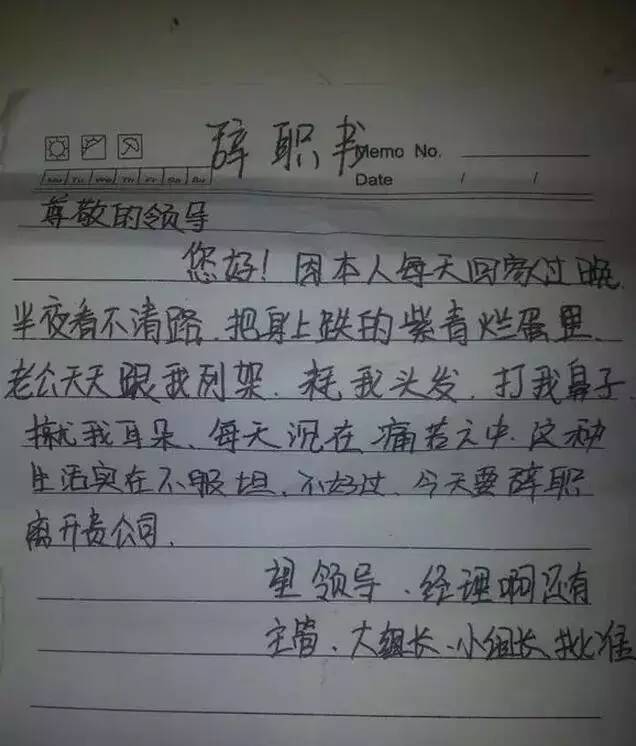 辞职书
Memo No.
Mo Tu We Th Fr Sa Su
Date / /
尊敬的领导
您好！因本人每天回家过晚.
半夜看不清路.把身上跌的紫青烂蛋里.
老公天天跟我列架.耗我头发.打我鼻子.
揪我耳朵、每天沉在痛苦之中.这种
生活实在不服坦、不好过、今天要辞职
离开贵公司.
望领导、经理啊还有
主管、大组长、小组长批准